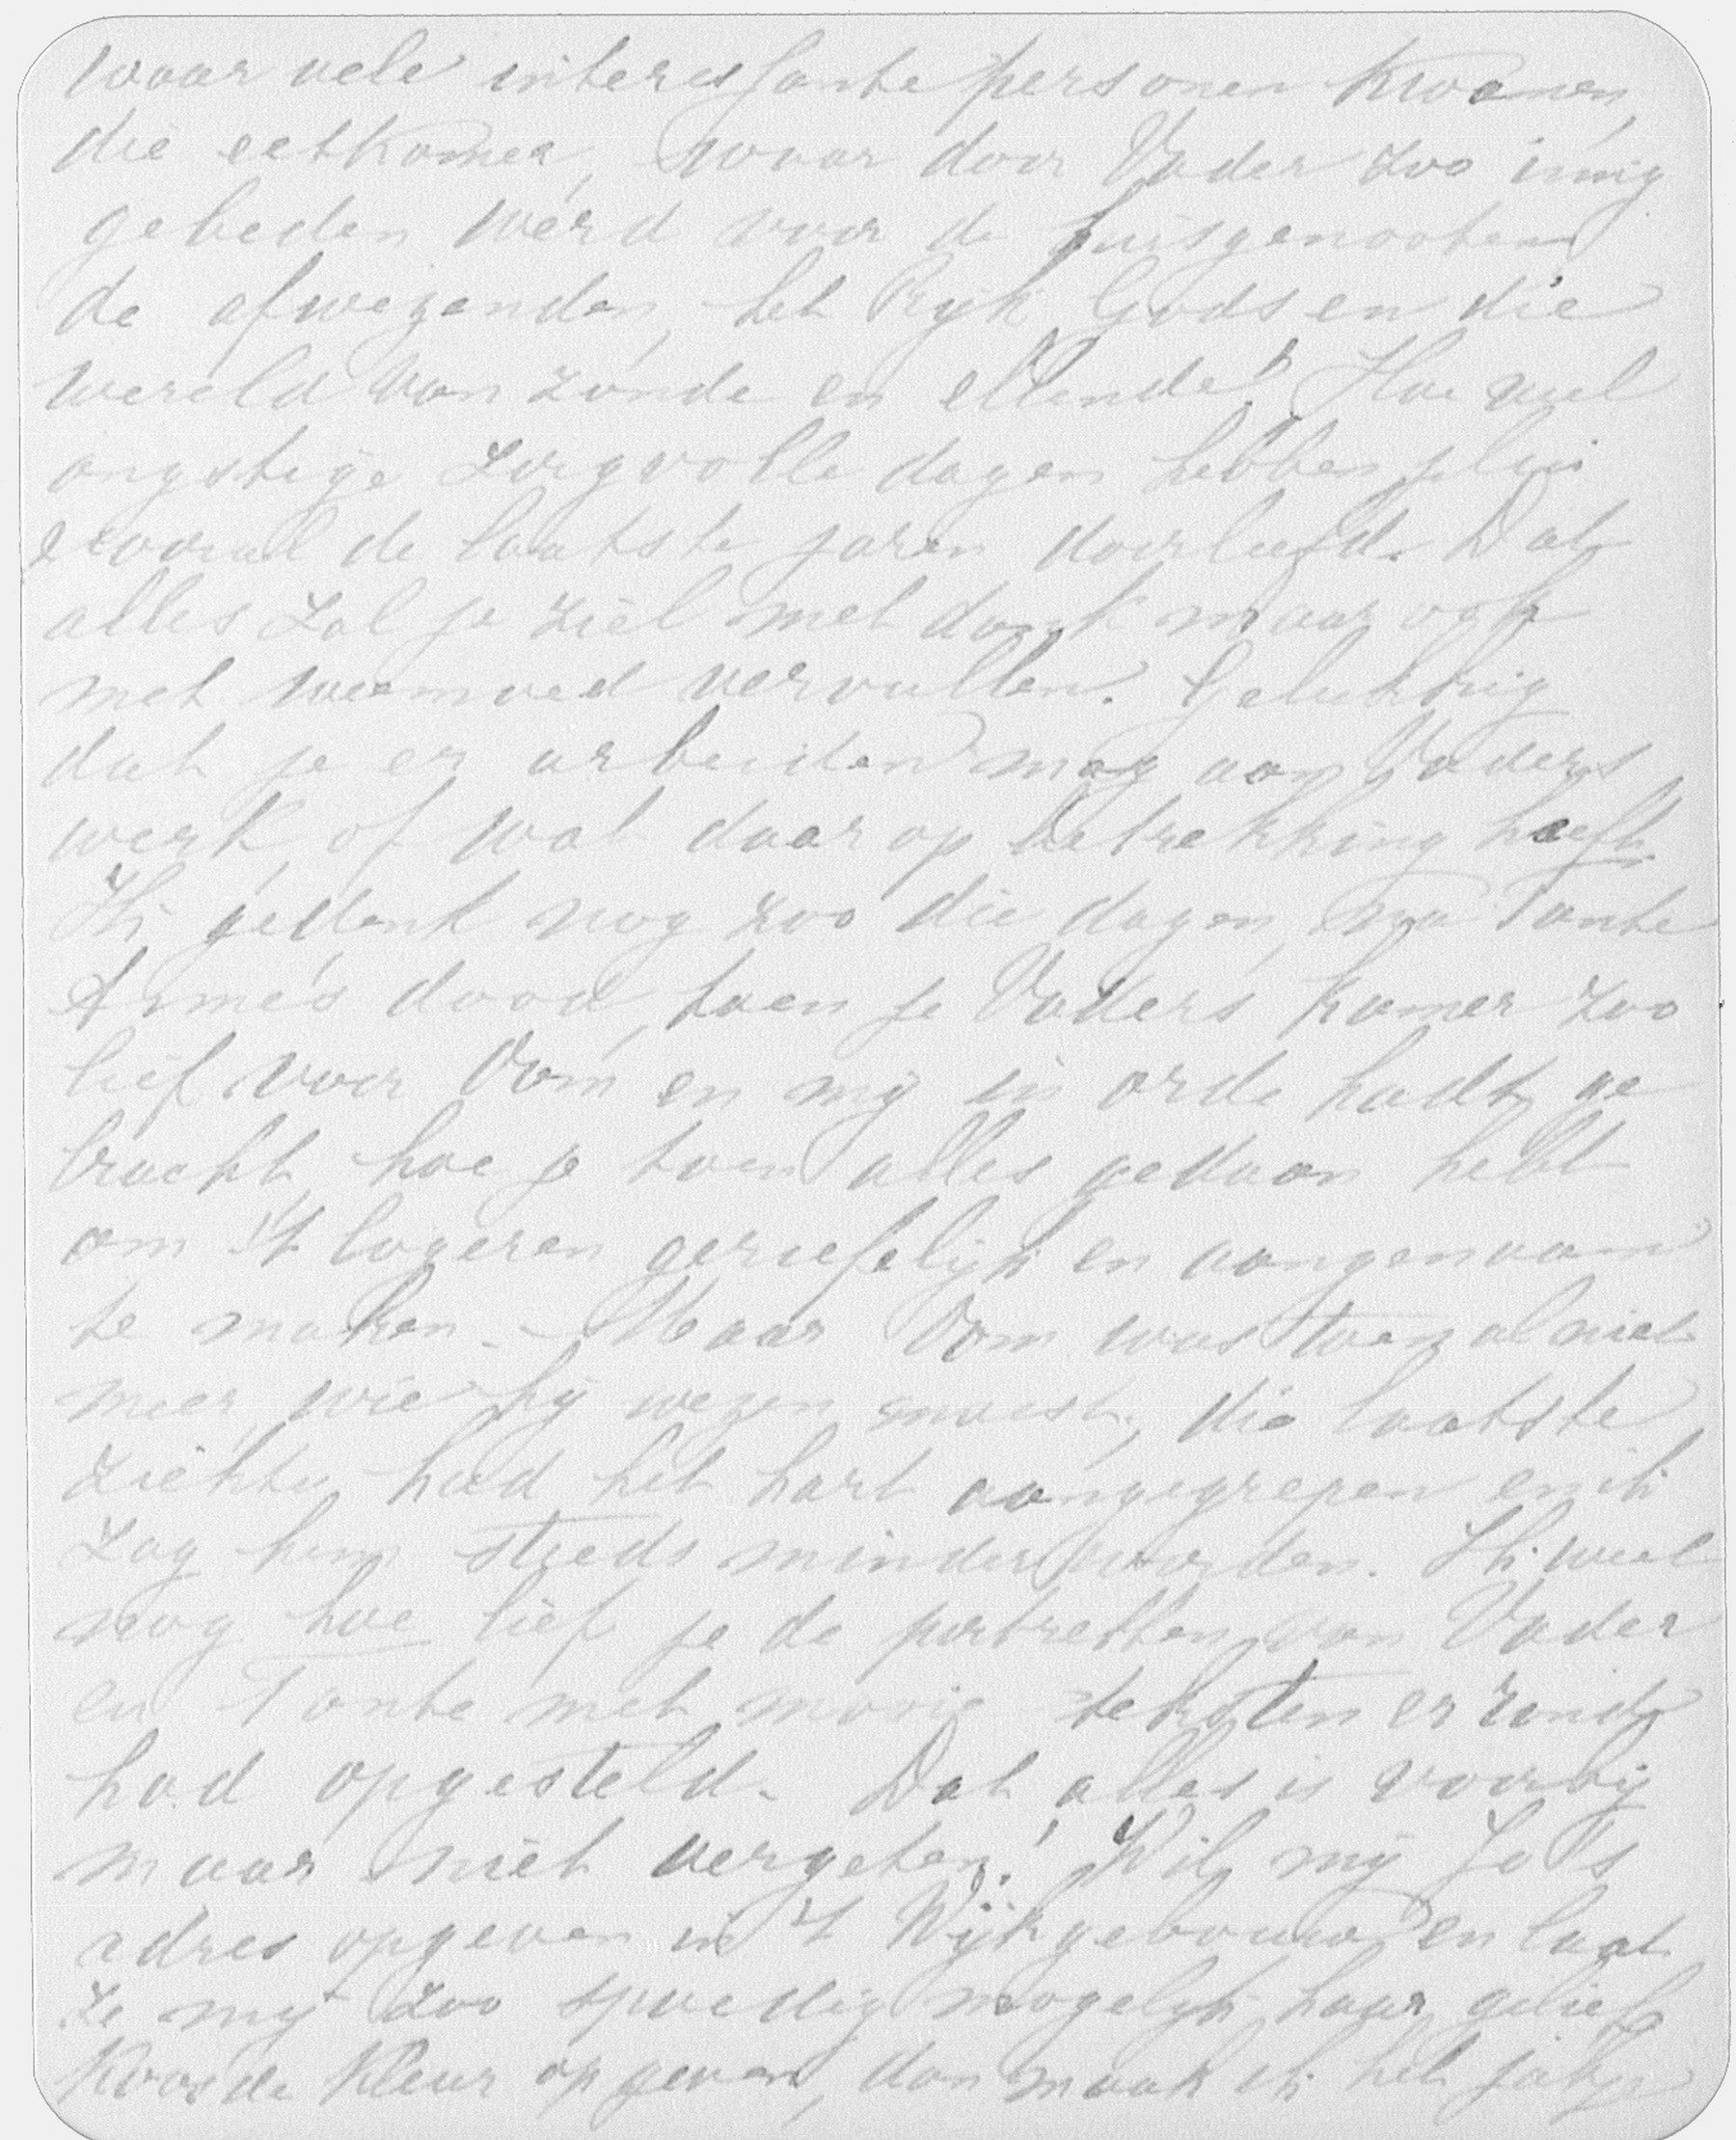 waar vele interessante personen kwamen,
die eetkamer, waar door Vader zoo innig
gebeden werd voor de huisgenooten
de afwezenden, het Rijk Gods en die
wereld van zonde en ellende! Hoe veel
angstige zorgvolle dagen hebben jelui
vooral de laatste jaren doorleefd. Dat
alles zal je ziel met dank maar ook
met weemoed vervullen. Gelukkig
dat je er arbeiden mag aan Vaders
werk, of wat daarop betrekking heeft.
Ik gedenk nog zoo die dagen, na Tante
dood, toen je Vaders kamer zoo
lief voor Oom en mij in orde hadt ge
bracht, hoe je toen alles gedaan hebt
om 't logeren geriefelijk en aangenaam
te maken. - Maar Oom was toen al niet
meer, wie hij wezen moest, die laatste
ziekte had het hart aangegrepen en ik
zag hem steeds minder worden. Ik weet
nog hoe lief je de portretten van Vader
en Tante met mooie teksten er rond
had opgesteld. Dat alles is voorbij
maar niet vergeten! Wil mij Jo's
adres opgeven in 't Wijkgebouw en laat
ze mij zoo spoedig mogelijk haar gelief
koosde kleur opgeven, dan maak ik het jakje